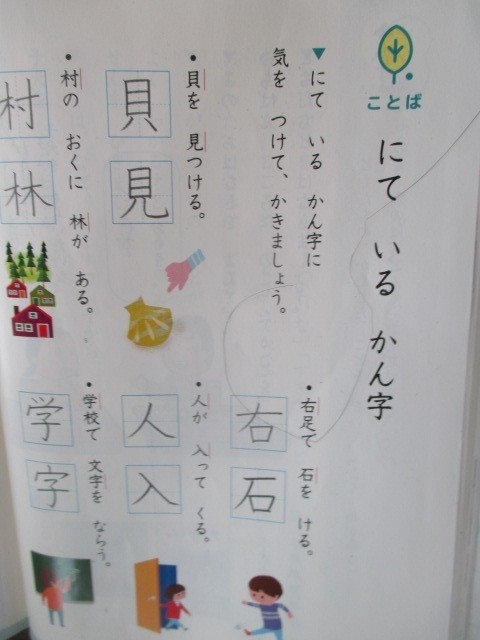 ことば
にて いる かん字
▼にて いる かん字に
気を つけて、かきましょう。
・貝を 見つける。
貝
見
・村の おくに 林が ある。
村
林
・右足で 石を ける。
右
石
・人が 入って くる。
人
入
・学校で 文字を ならう。
学
字